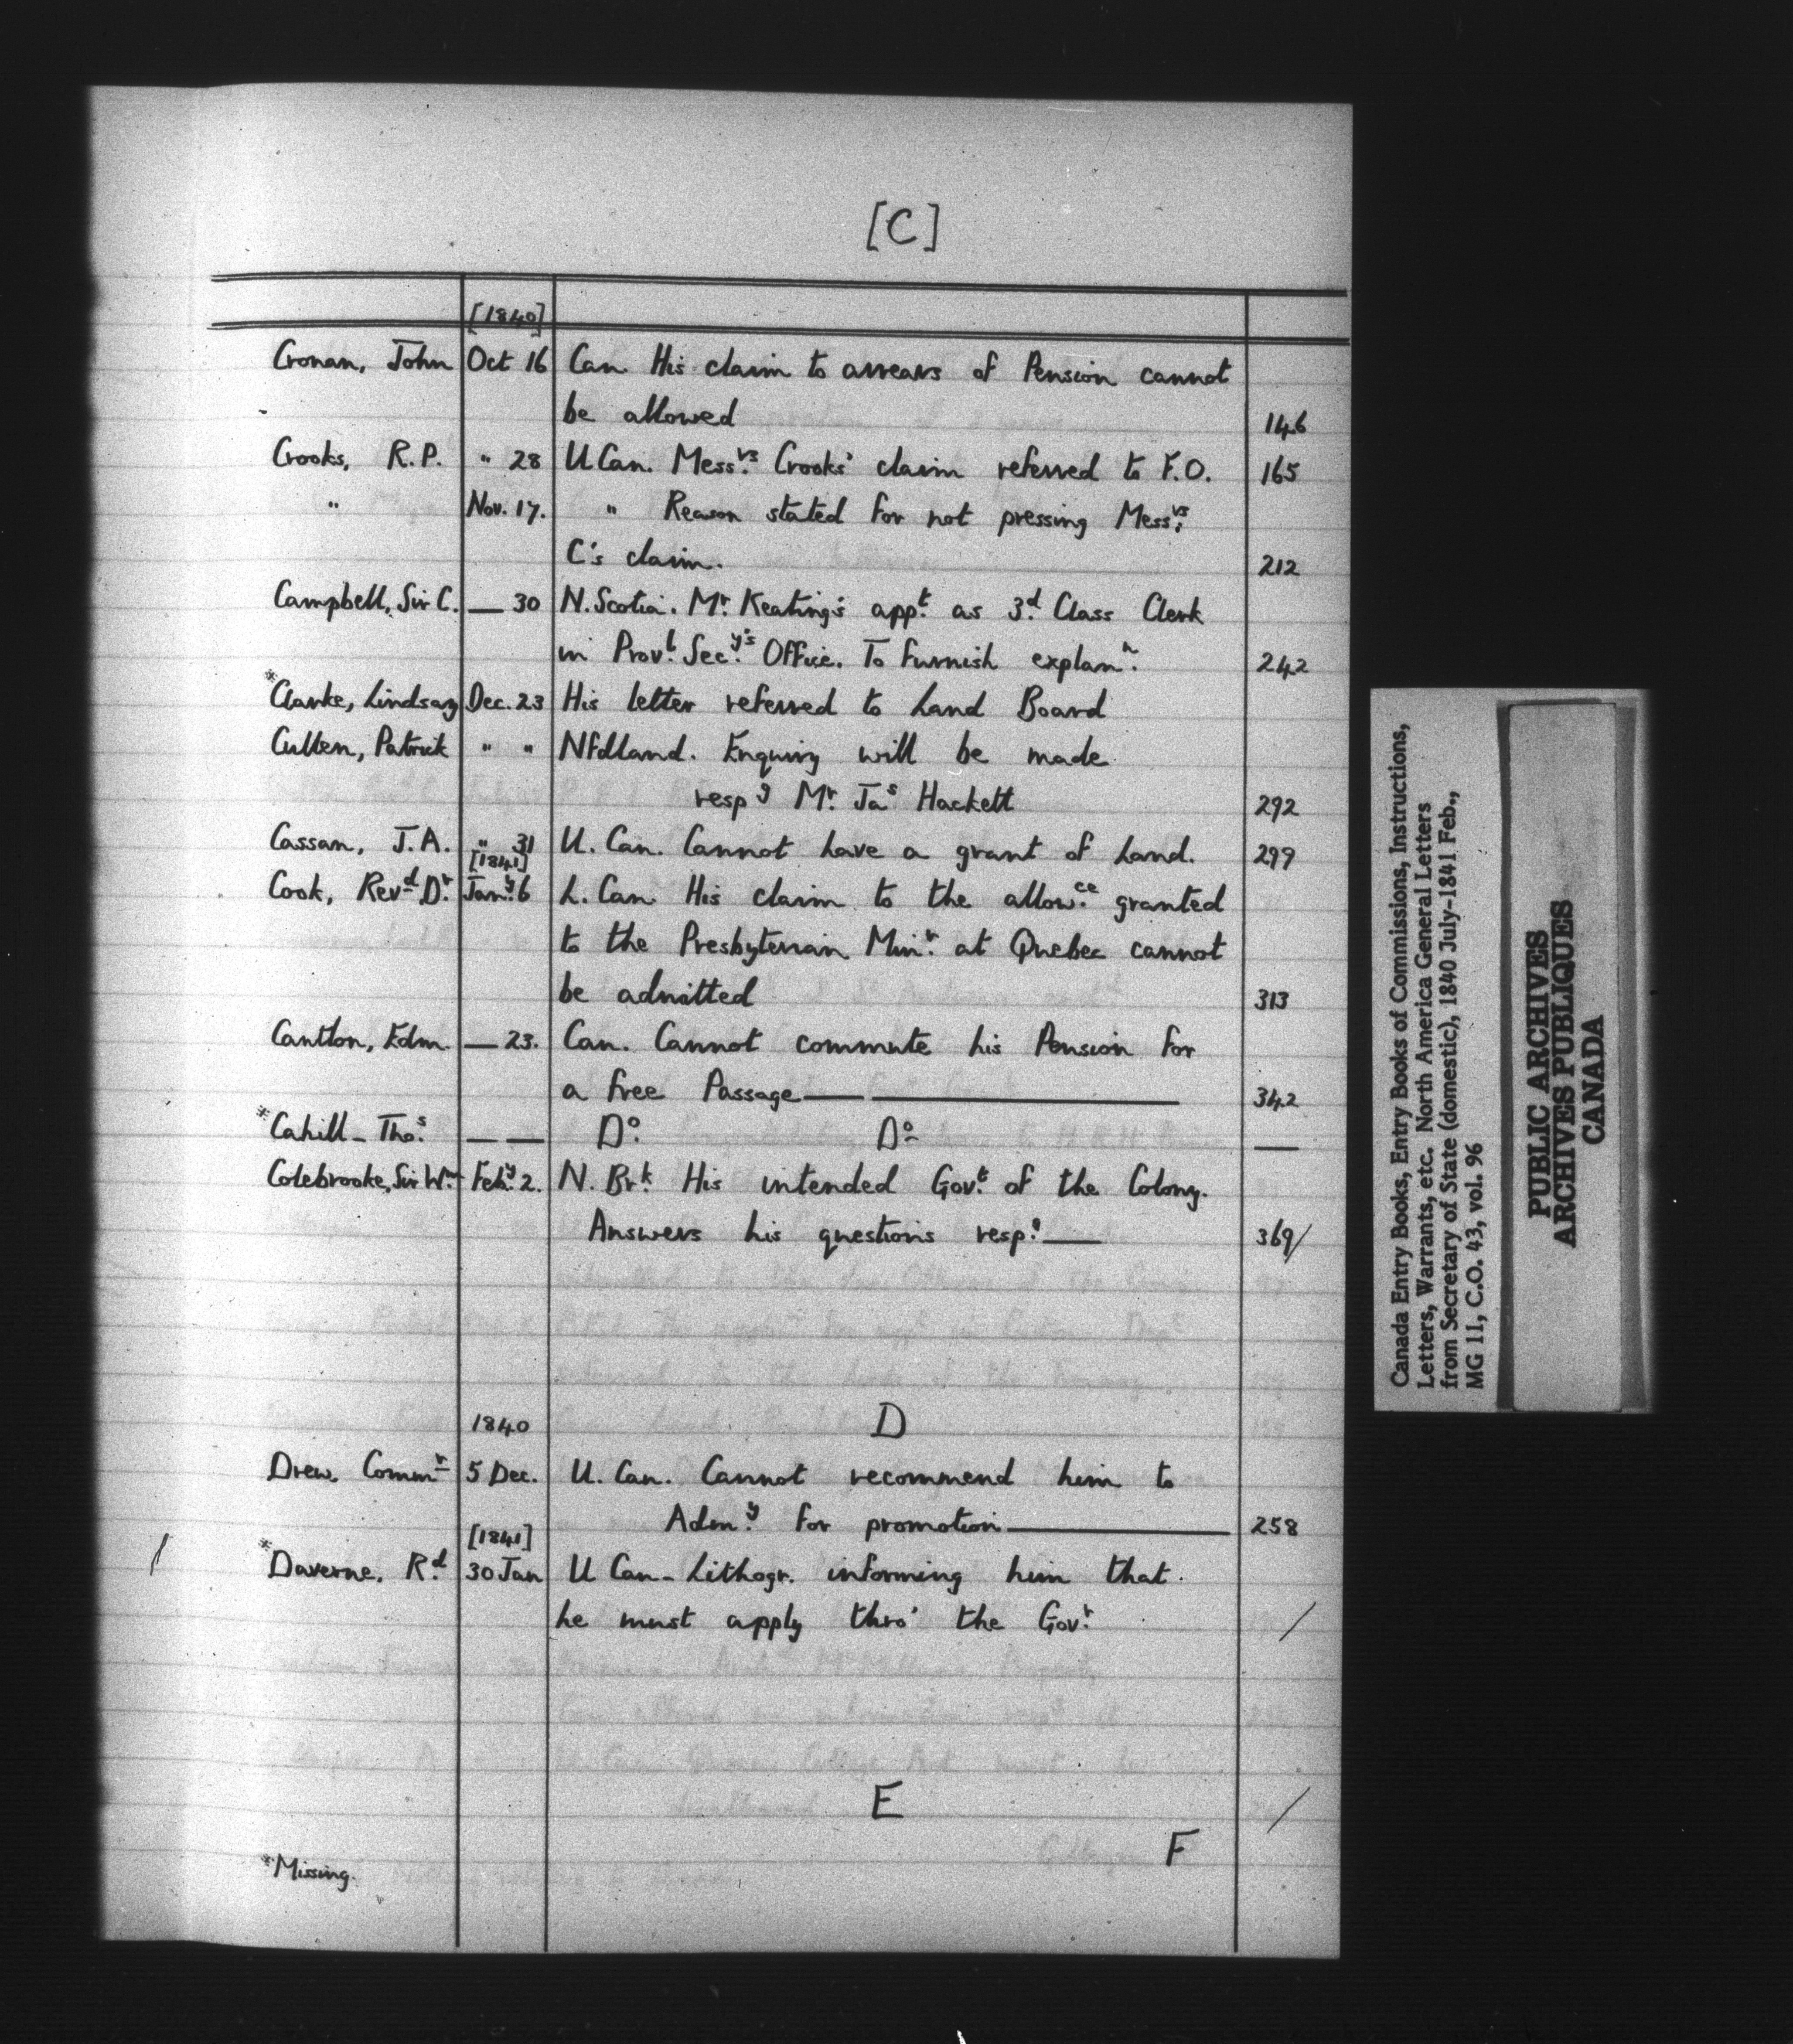 [C]
[1840]
Cronan, John Oct 16 Can. His claim to arrears of Pension cannot
be allowed 146
Crooks, R.P. " 28 U Can. Messrs Crooks' claim referred to F.O. 165
" Nov. 17. " Reason stated for not pressing Messrs
C's claim. 212
Campbell, Sir C. — 30 N. Scotia. Mr. Keating's appt. as 3d. Class Clerk
in Provl. Secy's. Office. To furnish explann. 242
*Clarke, Lindsay Dec. 23 His letter referred to Land Board
Cullen, Patrick " " Nfdland. Enquiry will be made
respg Mr. Jas Hackett 292
Cassan, J.A. " 31 U. Can. Cannot have a grant of Land. 299
[1841]
Cook, Revd Dr. Jany. 6 L. Can. His claim to the allowce. granted
to the Presbyterian Minr. at Quebec cannot
be admitted 313
Cantlon, Edm. — 23. Can. Cannot commute his Pension for
a free Passage — — 342
*Cahill – Thos. — — Do. Do. —
Colebrooke, Sir Wm. Feby. 2. N. Brk. His intended Govt. of the Colony.
Answers his questions resp.g — 369/
1840 D
Drew. Commr 5 Dec. U. Can. Cannot recommend him to
Admy. for promotion — 258
[1841]
/ *Daverne. Rd. 30 Jan U Can – Lithogr. informing him that
he must apply thro' the Govr. /
E /
F
*Missing.
Canada Entry Books, Entry Books of Commissions, Instructions,
Letters, Warrants, etc. North America General Letters
from Secretary of State (domestic), 1840 July-1841 Feb.,
MG 11, C.O. 43, vol. 96
PUBLIC ARCHIVES
ARCHIVES PUBLIQUES
CANADA